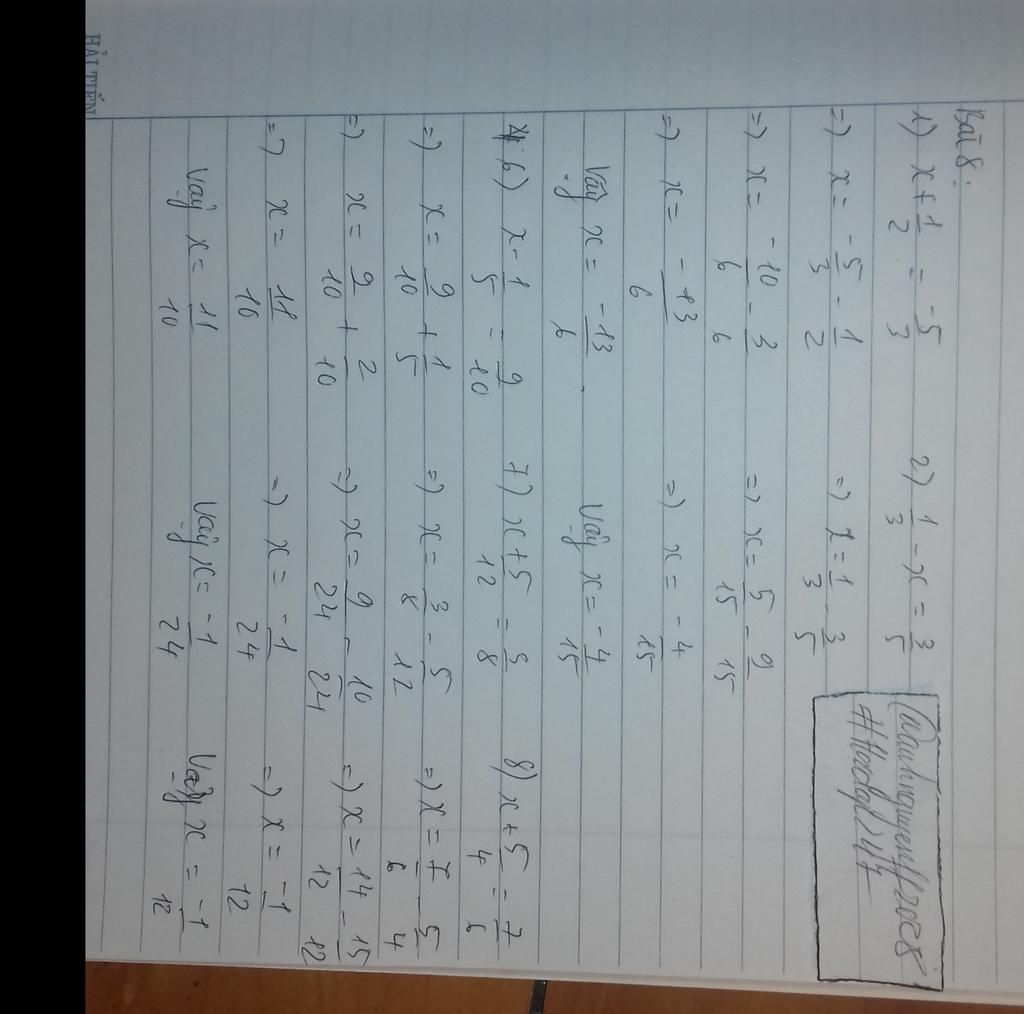 HẢI TIẾN
Bài 8:
1) x + 1/2 = -5/3
=) x = -5/3 - 1/2
=) x = -10/6 - 3/6
=) x = -13/6
Vậy x = -13/6.
2) 1/3 - x = 3/5
=) x = 1/3 - 3/5
=) x = 5/15 - 9/15
=) x = -4/15
Vậy x = -4/15
#Hoidap247
6) x - 1/5 = 9/10
=) x = 9/10 + 1/5
=) x = 9/10 + 2/10
=) x = 11/10
Vậy x = 11/10
7) x + 5/12 = 3/8
=) x = 3/8 - 5/12
=) x = 9/24 - 10/24
=) x = -1/24
Vậy x = -1/24
8) x + 5/4 = 7/6
=) x = 7/6 - 5/4
=) x = 14/12 - 15/12
=) x = -1/12
Vậy x = -1/12